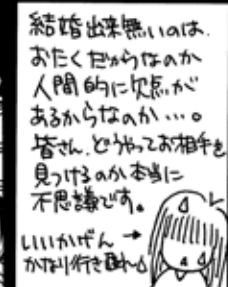 結婚出来無いのは、
おたくだからなのか
人間的に欠点が
あるからなのか…。
皆さん、どうやってお相手を
見つけるのか本当に
不思議です。
いいかげん →
かなり行き遅れ